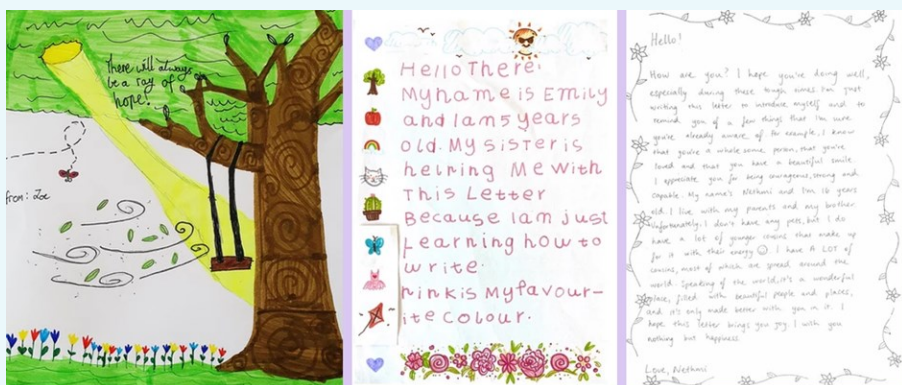 There will always
be a ray of
hope!
from: Zoe
Hello There.
My name is Emily
and I am 5 years
old. My sister is
helping Me with
This Letter
Because I am just
Learning how to
write.
Pink is My favour-
ite colour.
Hello!
How are you? I hope you're doing well,
especially during these tough times. I'm just
writing this letter to introduce myself and to
remind you of a few things that I'm sure
you're already aware of. For example, I know
that you're a whole some person, that you're
loved and that you have a beautiful smile.
I appreciate you for being courageous, strong and
capable. My name's Nethmi and I'm 16 years
old. I live with my parents and my brother.
Unfortunately, I don't have any pets, but I do
have a lot of younger cousins that make up
for it with their energy ☺ I have A LOT of
cousins, most of which are spread around the
world. Speaking of the world, it's a wonderful
place, filled with beautiful people and places,
and it's only made better with you in it. I
hope this letter brings you joy. I wish you
nothing but happiness.
Love, Nethmi